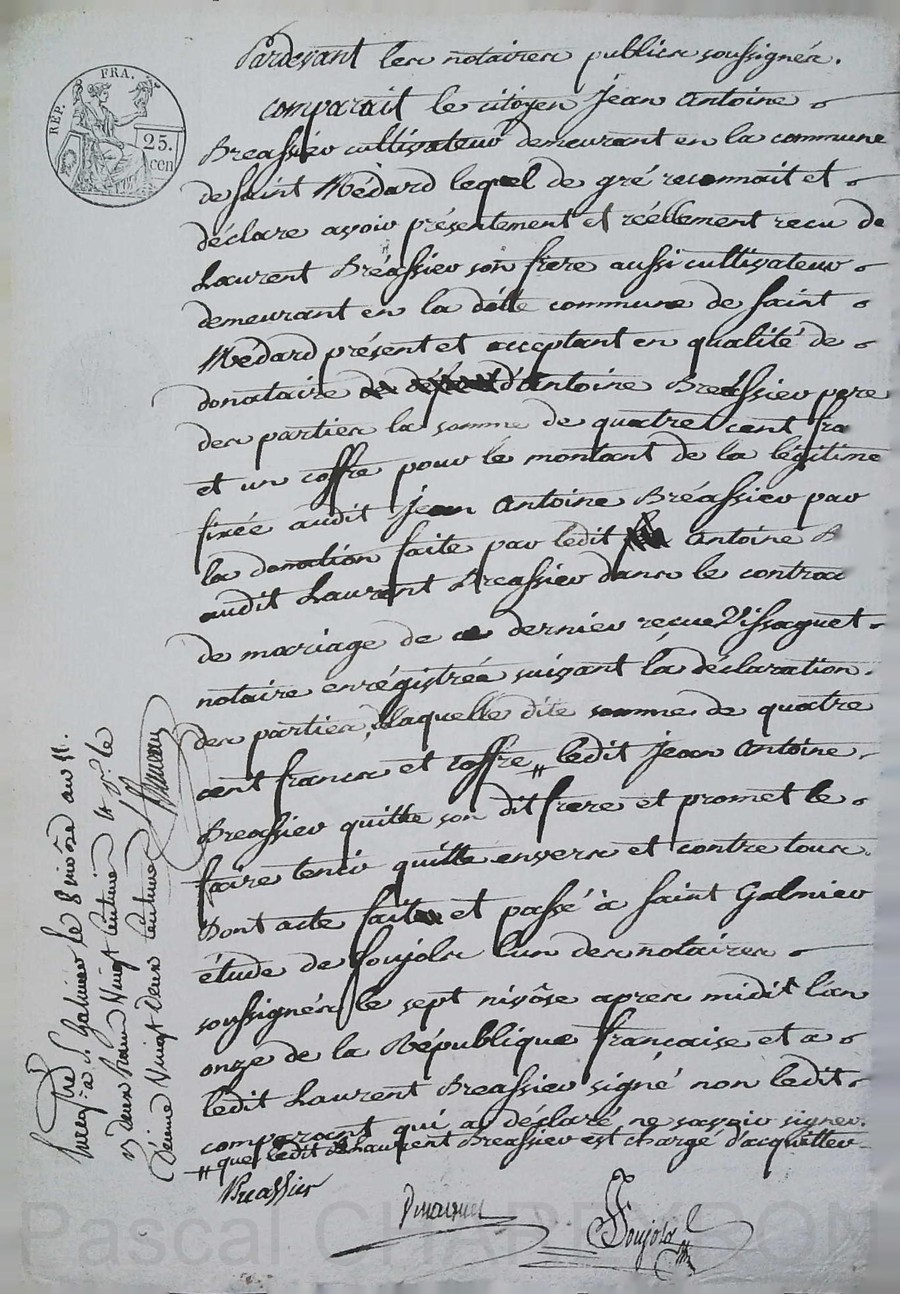 REP. FRA.
25.
cen
Pardevant les notaires publics soussignés.
comparait le citoyen Jean Antoine
Breassier cultivateur demeurant en la commune
de Saint Médard lequel de gré reconnait et
déclare avoir présentement et réellement recu de
Laurent Bréassier son frere aussi cultivateur
demeurant en la ditte commune de Saint
Médard présent et acceptant en qualité de
donataire d'Antoine Breassier pere
des parties la somme de quatre cent fra
et un coffre pour le montant de la légitime
fixée audit Jean Antoine Bréassier par
la donation faite par ledit Antoine B
audit Laurent Breassier dans le contrac
de mariage de ce dernier recue Vissaguet
notaire enrégistrée suivant la déclaration
des parties, delaquelle dite somme de quatre
cent francs et coffre " ledit Jean Antoine
Breassier quitte son dit frere et promet le
faire tenir quitte envers et contre tous.
Dont acte fait et passé à Saint Galmier
étude de Soujols l'un des notaires
soussignés le sept nivôse apres midit l'an
onze de la République française et a
ledit Laurent Breassier signé non ledit
comparant qui a déclaré ne savoir signer.
" que ledit Laurent Breassier est chargé d'acquitter
Breassier
Soujols
Enregtré à St Galmier le 8 nivôse an 11.
deux francs vingt centimes
Décime vingt deux centimes
Pascal CHAMBON